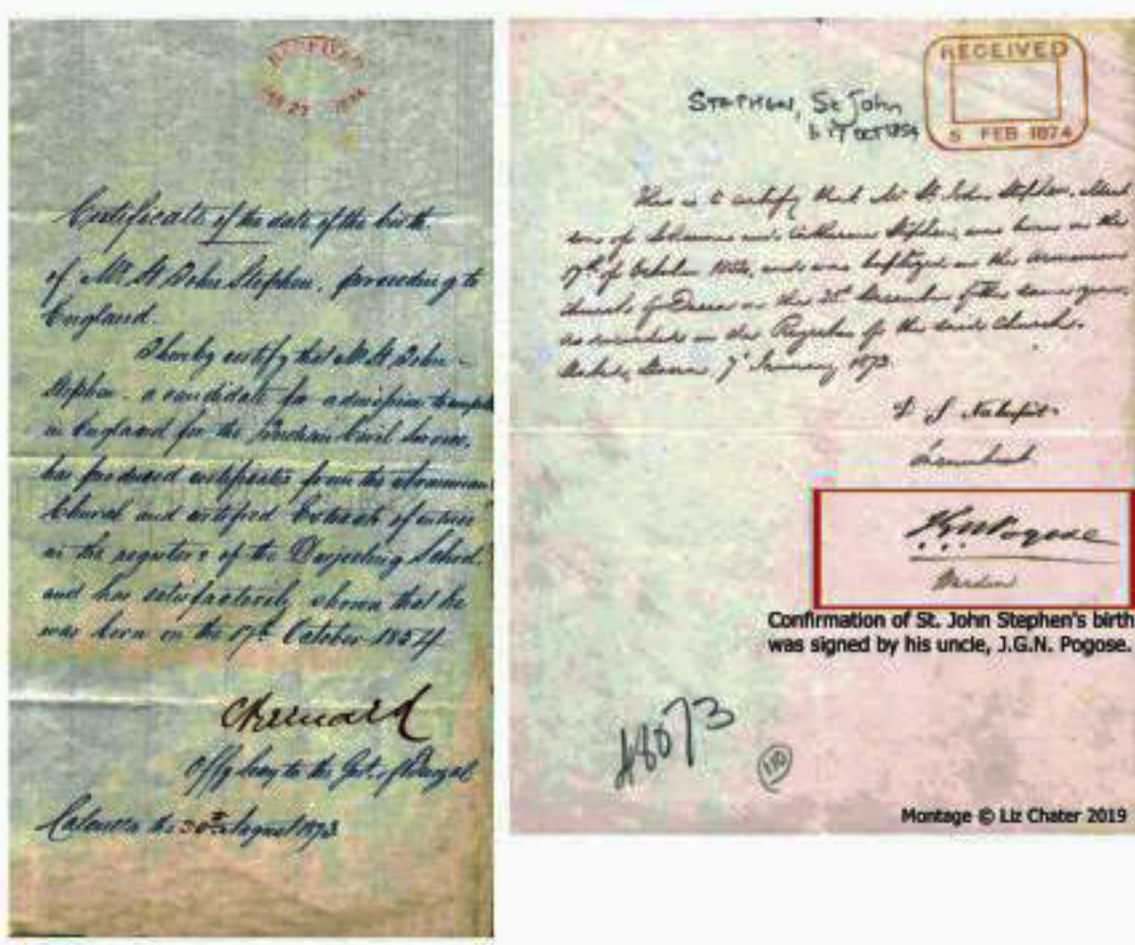 RECEIVED
23 1874
Certificate of the date of the birth
of Mr St John Stephen, proceeding to
England.
I hereby certify that Mr St John
Stephen - a candidate for admission to
in England for the Indian Civil Service,
has produced certificates from the Armenian
Church and certified Extracts of entries
in the registers of the Darjeeling School
and has satisfactorily shown that he
was born on the 17th October 1854
CBernard
Offg Secy to the Govt of Bengal
Calcutta the 30th August 1873
RECEIVED
5 FEB 1874
STEPHEN, St John
b 17 OCT 1854
This is to certify that Mr St John Stephen,
son of and Catherine Stephen, was born on the
17th of October and was baptized in the Armenian
Church of Dacca on the 25th December of the same year,
as recorded in the Register of the said Church.
Dacca 7 January 1873
JGNPogose
Warden
Confirmation of St. John Stephen's birth
was signed by his uncle, J.G.N. Pogose.
48073
110
Montage © Liz Chater 2019